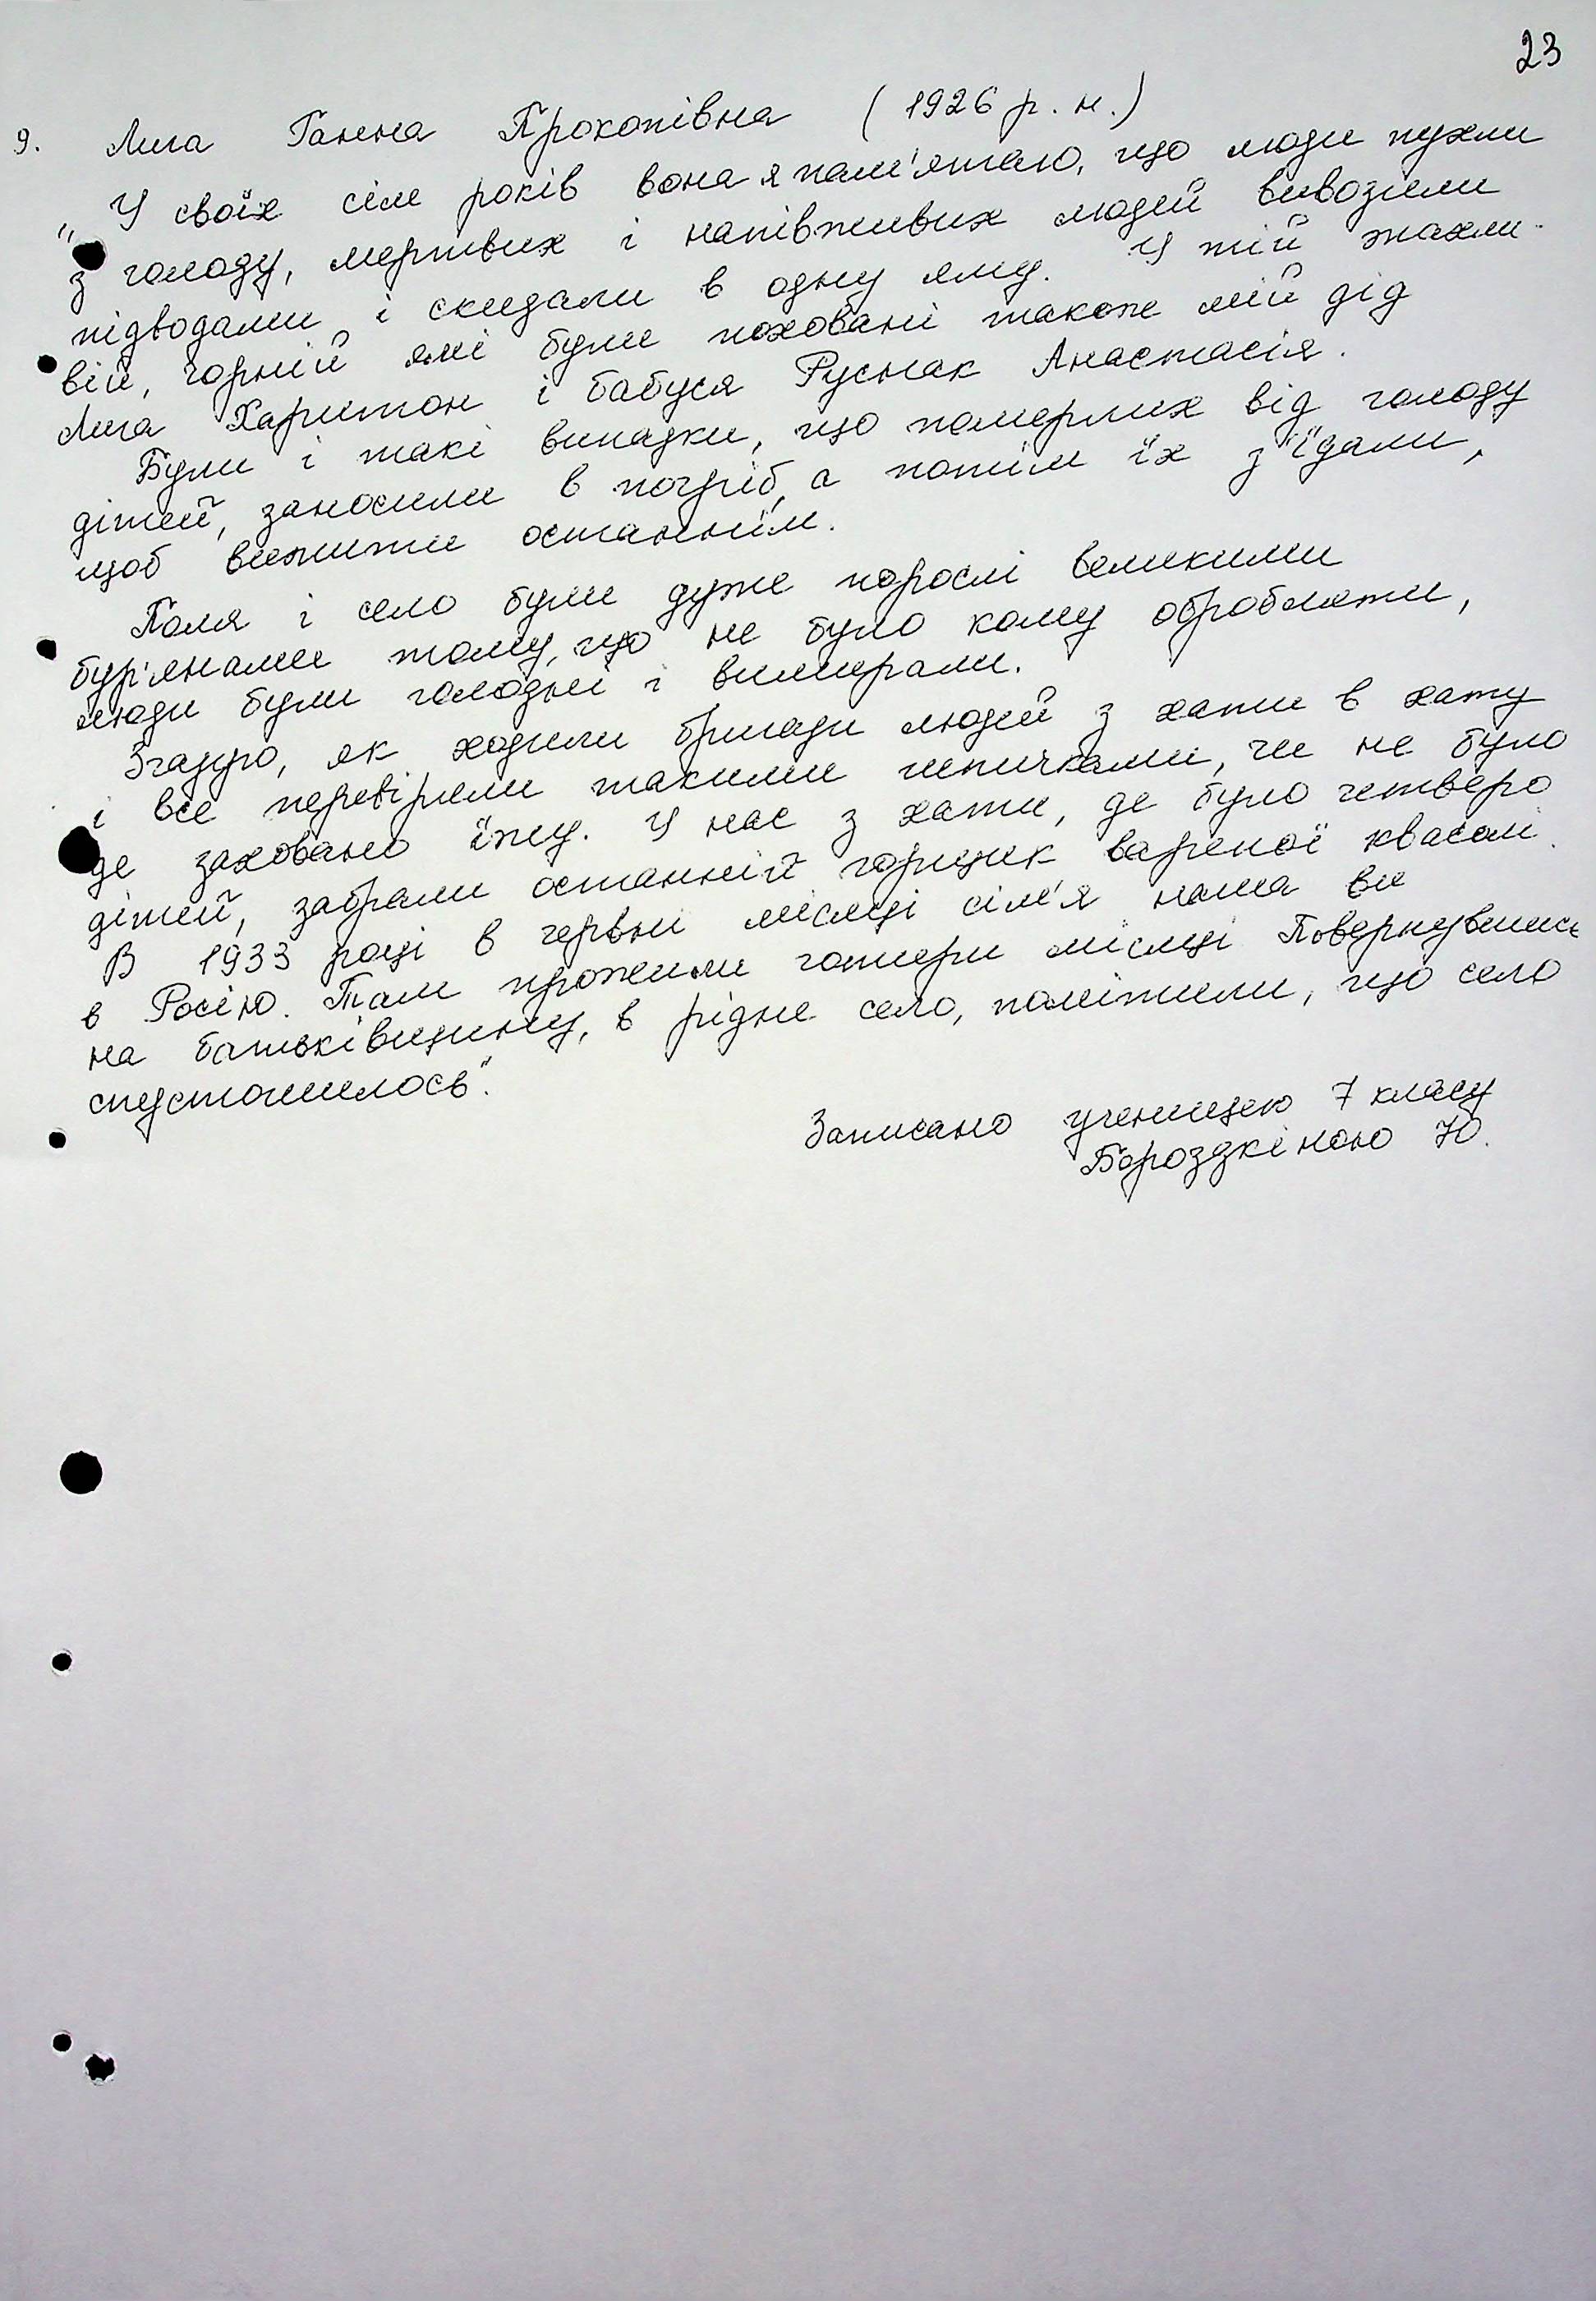 23
9. Лига Ганна Прокопівна (1926 р. н.)
„У своїх сім років вона я пам'ятаю, що люди пухли
з голоду, мертвих і напівживих людей вивозили
підводами і скидали в одну яму. У тій жахли-
вій, чорній ямі були поховані також мій дід
Лига Харитон і бабуся Руснак Анастасія.
Були і такі випадки, що померлих від голоду
дітей, заносили в погріб, а потім їх з'їдали,
щоб вижити останнім.
Поля і село були дуже порослі великими
бур'янами тому, що не було кому обробляти,
люди були голодні і вимирали.
Згадую, як ходили бригади людей з хати в хату
і все перевіряли такими шпичками, чи не було
де заховано їжу. У нас з хати, де було четверо
дітей, забрали останній горщик вареної квасолі.
В 1933 році в червні місяці сім'я наша ви
в Росію. Там прожили чотири місяці Повернувшись
на батьківщину, в рідне село, помітили, що село
спустошилось".
Записано ученицею 7 класу
Бороздкіною Ю.